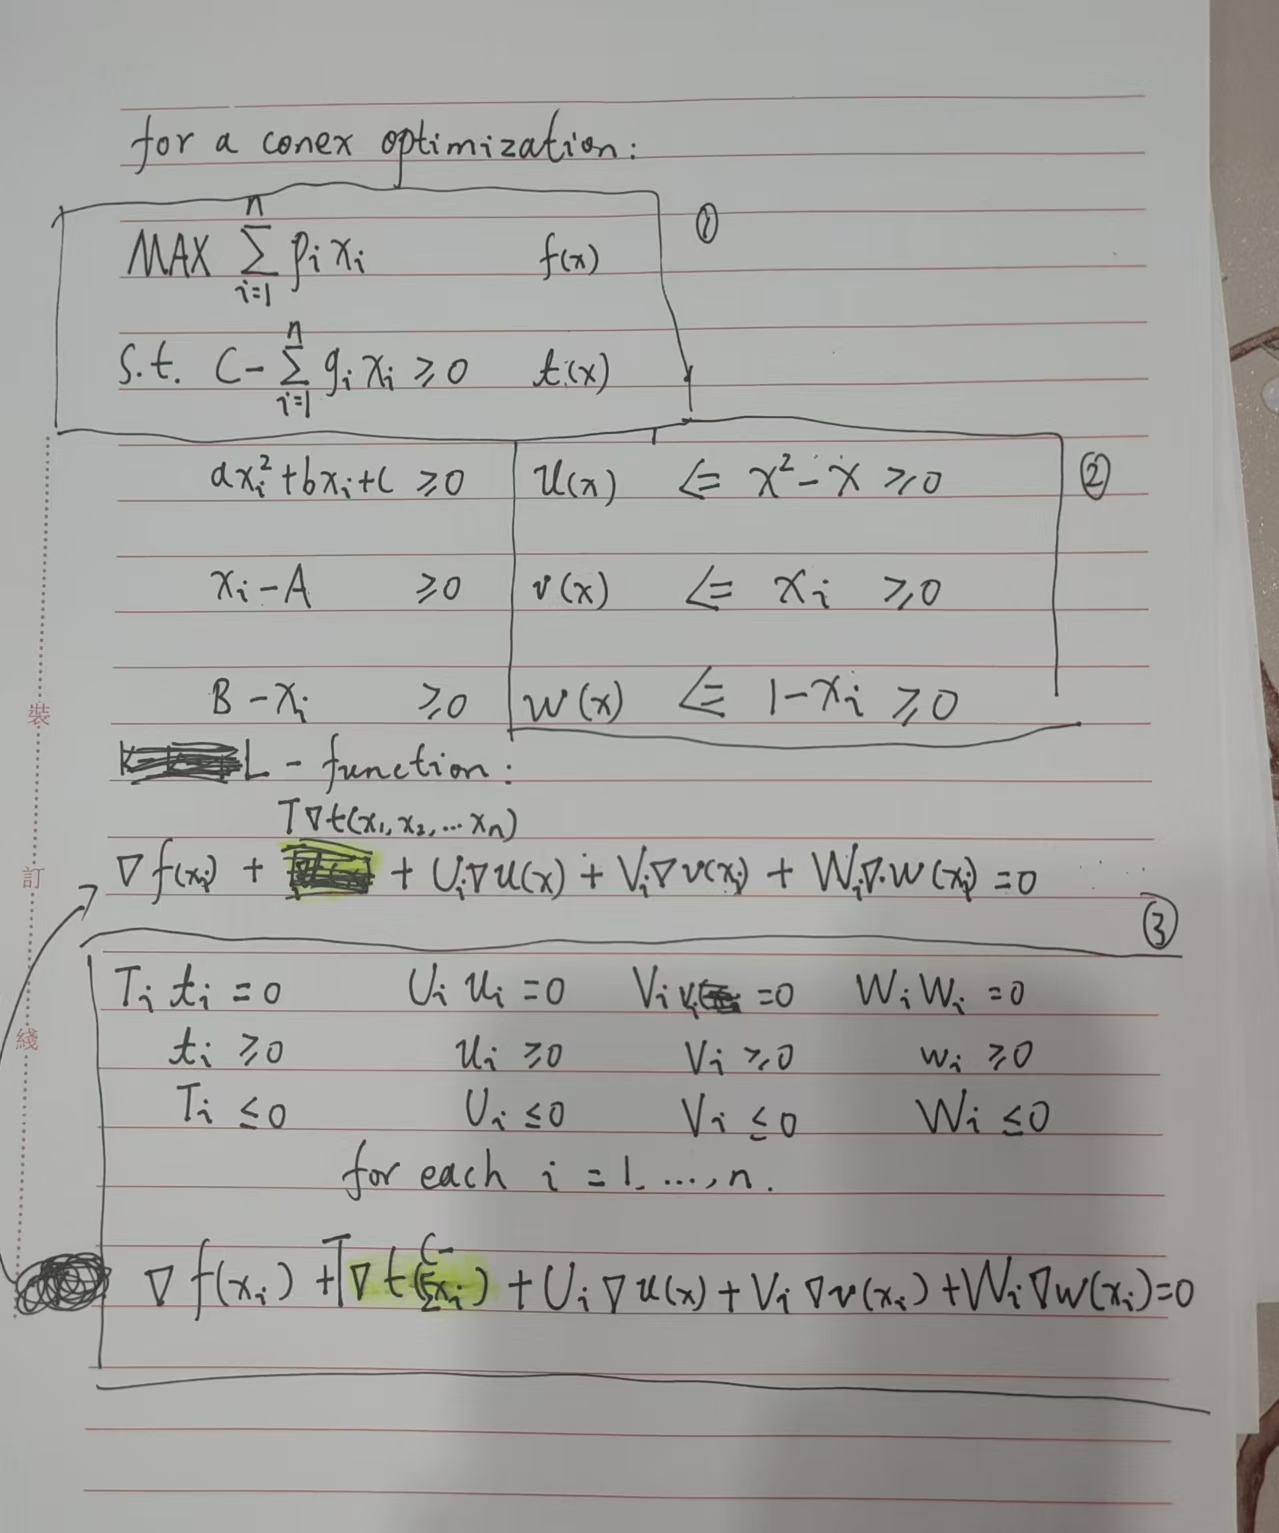 for a conex optimization:
MAX n∑i=1 pᵢ xᵢ f(x) ①
S.t. C- n∑i=1 gᵢ xᵢ ≥0 t(x)
axᵢ²+bxᵢ+C ≥0 u(x) ⇐ x²-x ≥0 ②
xᵢ-A ≥0 v(x) ⇐ xᵢ ≥0
B-xᵢ ≥0 w(x) ⇐ 1-xᵢ ≥0
裝
L-function:
T∇t(x₁,x₂,...xₙ)
訂
∇f(xᵢ) + + Uᵢ∇u(x) + Vᵢ∇v(xᵢ) + Wᵢ∇.w(xᵢ) =0
③
Tᵢ tᵢ =0 Uᵢ uᵢ =0 Vᵢ vᵢ =0 Wᵢ Wᵢ =0
綫
tᵢ ≥0 uᵢ ≥0 Vᵢ ≥0 wᵢ ≥0
Tᵢ ≤0 Uᵢ ≤0 Vᵢ ≤0 Wᵢ ≤0
for each i =1,...,n.
C-
∇f(xᵢ) +T∇t(Σxᵢ) + Uᵢ∇u(x) + Vᵢ∇v(xᵢ) +Wᵢ∇w(xᵢ)=0